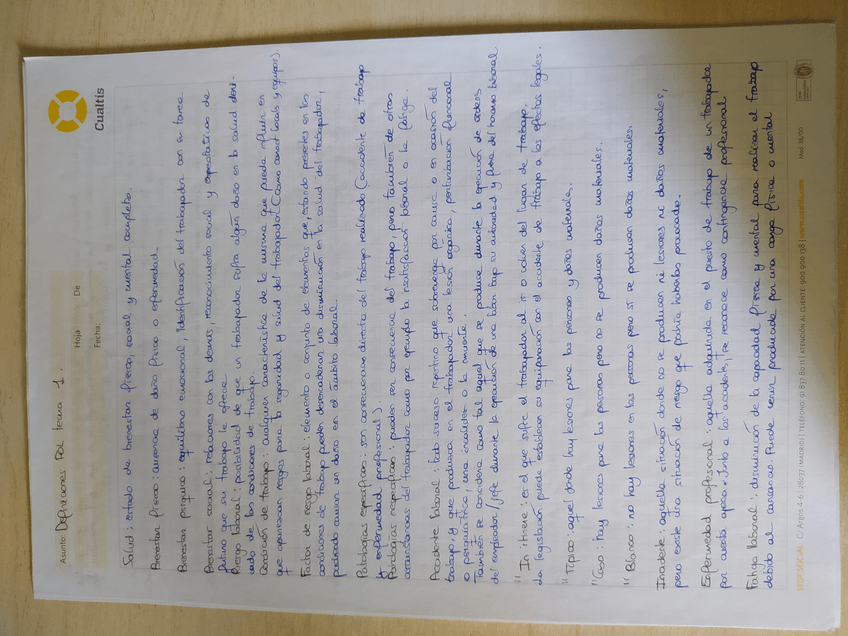 Cualtis
Hoja De
Asunto: Definiciones PRL tema 1. Fecha:
Salud: estado de bienestar físico, social y mental completo.
Bienestar físico: ausencia de daño físico o enfermedad.
Bienestar psíquico: equilibrio emocional, identificación del trabajador con su tarea
Bienestar social: relaciones con los demás, reconocimiento social y expectativas de
futuro que su trabajo le ofrece
Riesgo laboral: posibilidad de que un trabajador sufra algún daño en la salud deri-
vado de las condiciones de trabajo
Condición de trabajo: cualquier característica de la misma que pueda influir en
que aparezcan riesgos para la seguridad y salud del trabajador (Como locales y equipos).
Factor de riesgo laboral: elemento o conjunto de elementos que, estando presentes en las
condiciones de trabajo pueden desencadenar una disminución en la salud del trabajador,
pudiendo causar un daño en el ámbito laboral.
Patologías específicas: son consecuencia directa del trabajo realizado (accidente de trabajo
y enfermedad profesional).
Patologías inespecíficas: pueden ser consecuencia del trabajo pero también de otras
características del trabajador como por ejemplo la insatisfacción laboral o la fatiga.
Accidente laboral: todo suceso repentino que sobrevenga por causa o en ocasión del
trabajo y que produzca en el trabajador una lesión orgánica, perturbación funcional
o psiquiátrica, una invalidez o la muerte.
También se considera como tal aquel que se produce durante la ejecución de órdenes
del empleador/jefe durante la ejecución de una labor bajo su autoridad y fuera del horario laboral
" In itinere: es el que sufre el trabajador al ir o volver del lugar de trabajo.
La legislación puede establecer su equiparación con el accidente de trabajo a los efectos legales.
" Típico: aquel donde hay lesiones para las personas y daños materiales.
" Caso: hay lesiones para las personas pero no se producen daños materiales.
" Blanco: no hay lesiones en las personas pero sí se producen daños materiales.
Incidente: aquella situación donde no se producen ni lesiones ni daños materiales,
pero existe una situación de riesgo que podría haberlos provocado.
Enfermedad profesional: aquella adquirida en el puesto de trabajo de un trabajador
por cuenta ajena. Junto a los accidents, se reconoce como contingencia profesional
Fatiga laboral: disminución de la capacidad física y mental para realizar el trabajo
debido al cansancio. Puede venir producida por una carga física o mental
SEDE SOCIAL C/ Argos 4-6 | 28037 (MADRID) | TELÉFONO: 91 837 80 11 | ATENCIÓN AL CLIENTE: 900 900 138 | www.cualtis.com Mod. 38/00